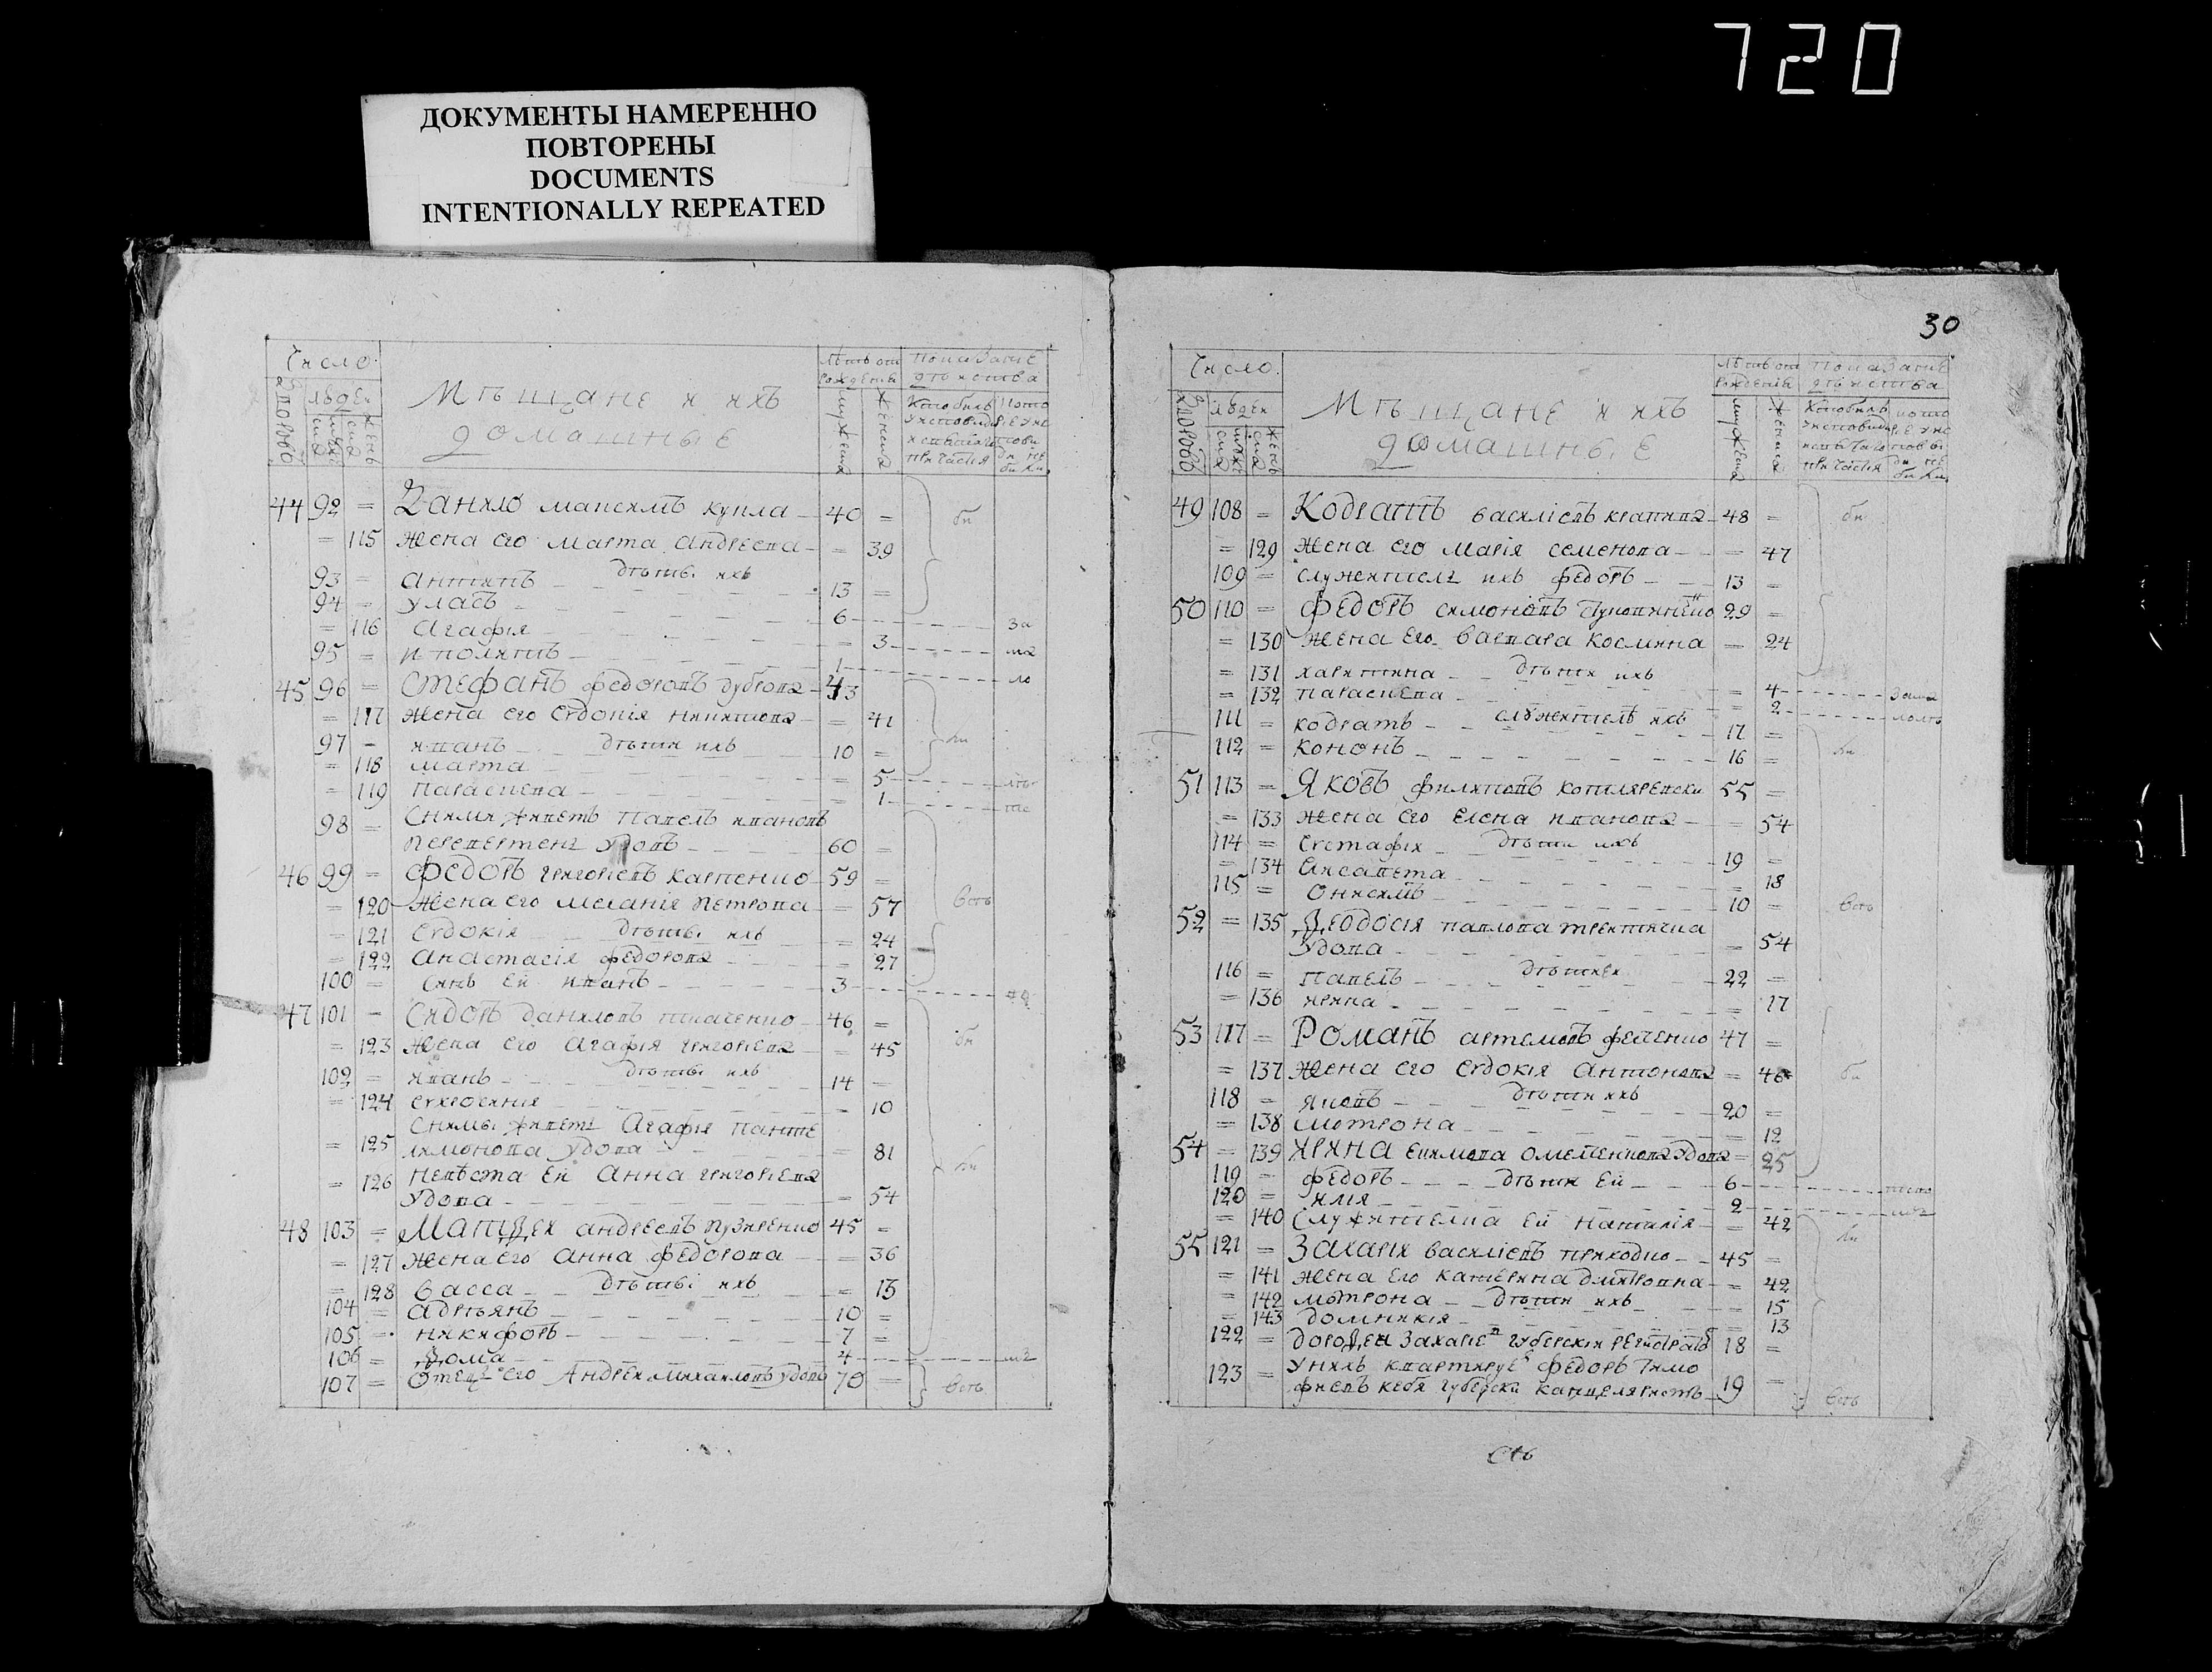 720
ДОКУМЕНТЫ НАМЕРЕННО
ПОВТОРЕНЫ
DOCUMENTS
INTENTIONALLY REPEATED
Число
Людей
Мѣщане и ихъ
домашные
Лѣтъ от
рожденія
Показание
44 92 = Данило максимъ купла 40 =
= 115 жена его марта андреева = 39
дѣтьі ихъ
93 = антипъ 13 =
94 = уласъ 6
= 116 агафія 3
95 = иполитъ 1
45 96 = Стефанъ федоровъ дуброва 43
= 117 жена его евдокія никитова = 41
97 = иванъ дѣти ихъ 10 =
= 118 марта = 5
= 119 параскева = 1
98 = Сними живетъ павелъ ивановъ
перепертень удовъ 60 =
46 99 = Федоръ григоріевъ карпенко 59 =
= 120 жена его меланія петрова = 57
= 121 евдокія дѣтьі ихъ = 24
= 122 анастасія федорова = 27
100 = синъ ей иванъ 3
47 101 = Сидоръ даниловъ ткаченко 46 =
= 123 жена его агафія григоріева = 45
102 = иванъ дѣтьі ихъ 14 =
= 124 ефросинія = 10
Снимы живетъ агафія панте
= 125 лимонова удова = 81
= 126 невѣста ей анна григоріева
удова = 54
48 103 = Матѳей андреевъ пузиренко 45 =
= 127 жена его анна федорова = 36
= 128 васса дѣтьі ихъ = 15
104 = адріянъ 10 =
105 = никифоръ 7 =
106 = ѳома 4
107 = Отецъ его Андреи михаиловъ удовъ 70 =
30
Число
Людей
Мѣщане и ихъ
домашныe
Лѣтъ от
рожденія
Показание
49 108 = Кодратъ василіевъ крапива 48 =
= 129 жена его марія семенова = 47
109 = служитель ихъ федоръ 13 =
50 110 = федоръ симоновъ 29 =
= 130 жена его варвара космина = 24
= 131 харитина дѣти ихъ = 4
= 132 параскева = 2
111 = кодратъ служителѣ ихъ 17 =
112 = кононъ 16 =
51 113 = Яковъ филиповъ котляревски 55 =
= 133 жена его елена иванова = 54
114 = евстафіи дѣти ихъ 19 =
= 134 елисавета = 18
115 = онисимъ 10 =
52 = 135 Ѳеодосія павлова третячка
удова = 54
116 = павелъ дѣти еи 22 =
= 136 ирина = 17
53 117 = Романъ артемовъ фесенко 47 =
= 137 жена его евдокія антонова = 46
118 = яковъ дѣти ихъ 20 =
= 138 мотрона = 12
54 = 139 ирина екимова удова = 25
119 = федоръ дѣти ей 6
120 = илія 2
= 140 служителка ей наталія = 42
55 121 = Захарія василіевъ приходко 45 =
= 141 жена его катерина дмитровна = 42
= 142 мотрона дѣти ихъ = 15
= 143 домникія = 13
122 = дороѳеи захаріев губерскіи регистратор 18 =
123 = у нихъ квартируе федоръ тимо
фиевъ кебя губерски канцеляристъ 19 =